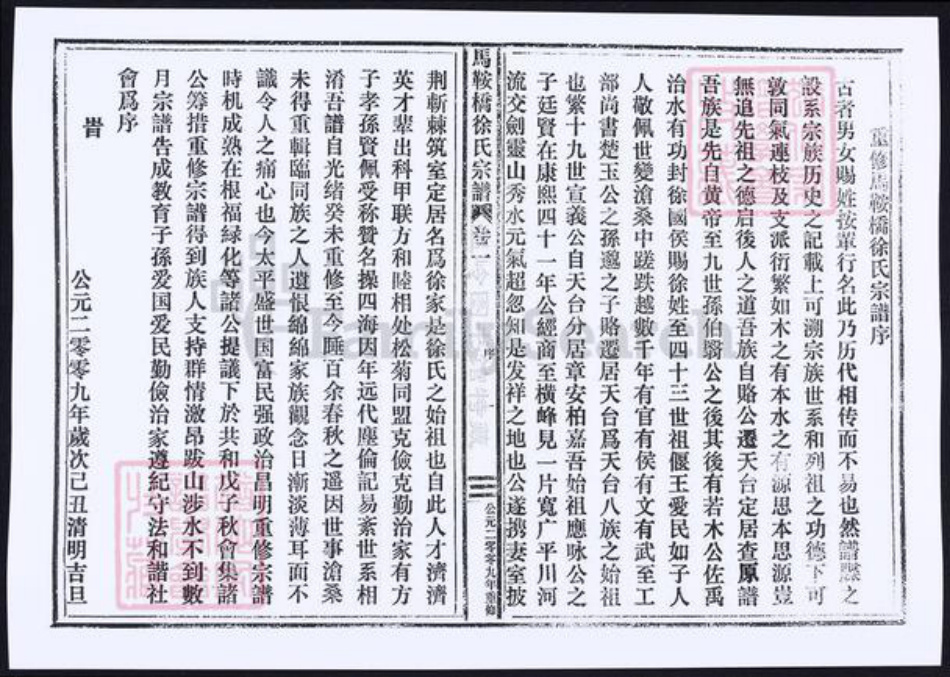 重修馬鞍橋徐氏宗譜序
古者男女賜姓按輩行名此乃历代相传而不易也然譜牒之
設系宗族历史之記載上可溯宗族世系和列祖之功德下可
敦同氣連枝及支派衍繁如木之有本水之有源思本思源豈
無追先祖之德启後人之道吾族自賂公遷天台定居查原譜
吾族是先自黄帝至九世孫伯翳公之後其後有若木公佐禹
治水有功封徐國侯賜徐姓至四十三世祖偃王爱民如子人
人敬佩世變滄桑中蹉跌越數千年有官有侯有文有武至工
部尚書楚玉公之孫邈之子賂遷居天台爲天台八族之始祖
也繁十九世宣義公自天台分居章安柏嘉吾始祖應咏公之
子廷賢在康熙四十一年公經商至横峰見一片寬广平川河
流交劍靈山秀水元氣超忽知是发祥之地也公遂携妻室披
馬鞍橋徐氏宗譜 卷一
序
公元二零零九年重修
荆斬棘筑室定居名爲徐家是徐氏之始祖也自此人才濟濟
英才輩出科甲联方和睦相处松菊同盟克儉克勤治家有方
子孝孫賢佩受称赞名操四海因年远代塵倫記易紊世系相
淆吾譜自光绪癸未重修至今睡百余春秋之遥因世事滄桑
未得重輯臨同族之人遺恨綿綿家族觀念日漸淡薄耳面不
識令人之痛心也今太平盛世国富民强政治昌明重修宗譜
時机成熟在根福緑化等諸公提議下於共和戊子秋會集諸
公筹措重修宗譜得到族人支持群情激昂跋山涉水不到數
月宗譜告成教育子孫爱国爱民勤儉治家遵紀守法和諧社
會爲序
旹
公元二零零九年歲次己丑清明吉旦
FamilySearch